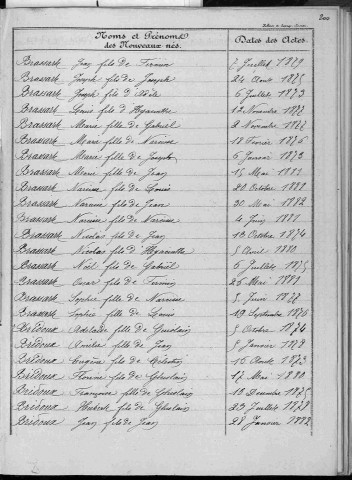 200
Noms et Prénoms
des Nouveaux nés.
Dates des Actes
Brassart Jean fils de Firmin 7 Juillet 1879
Brassart Joseph fils de Joseph 24 Août 1875
Brassart Joseph fils d' 6 Juillet 1873
Brassart Louis fils d'Hyacinthe 12 Novembre 1877
Brassart Marie fille de Gabriel 2 Novembre 1877
Brassart Marie fille de Narcisse 18 Février 1876
Brassart Marie fille de Joseph 6 Janvier 1873
Brassart Marie fille de Jean 15 Mai 1881
Brassart Narcisse fils de Louis 20 Octobre 1881
Brassart Narcisse fils de Jean 30 Mai 1882
Brassart Narcisse fils de Narcisse 4 Juin 1881
Brassart Nicolas fils de Jean 18 Octobre 1874
Brassart Nicolas fils d'Hyacinthe 5 Avril 1880
Brassart Noël fils de Gabriel 6 Juillet 1875
Brassart Oscar fils de Firmin 25 Mai 1881
Brassart Sophie fille de Narcisse 5 Juin 1877
Brassart Sophie fille de Louis 19 Septembre 1876
Brédoux Adélaïde fille de Ghislain 5 Octobre 1874
Brédoux Amélie fille de Jean 9 Janvier 1878
Brédoux Eugène fils de Célestin 16 Août 1873
Brédoux Florence fils de Ghislain 17 Mai 1880
Brédoux Françoise fille de Ghislain 10 Décembre 1875
Brédoux Hubert fils de Ghislain 23 Juillet 1877
Brédoux Jean fils de Jean 28 Janvier 1882